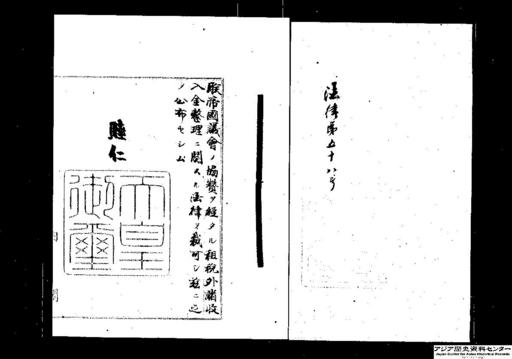 法律第五十八号
朕帝國議會ノ協賛ヲ經タル租税外諸收
入金整理ニ關スル法律ヲ裁可シ茲ニ之
ヲ公布セシム
睦仁
天皇
御璽
アジア歴史資料センター
Japan Center for Asian Historical Records